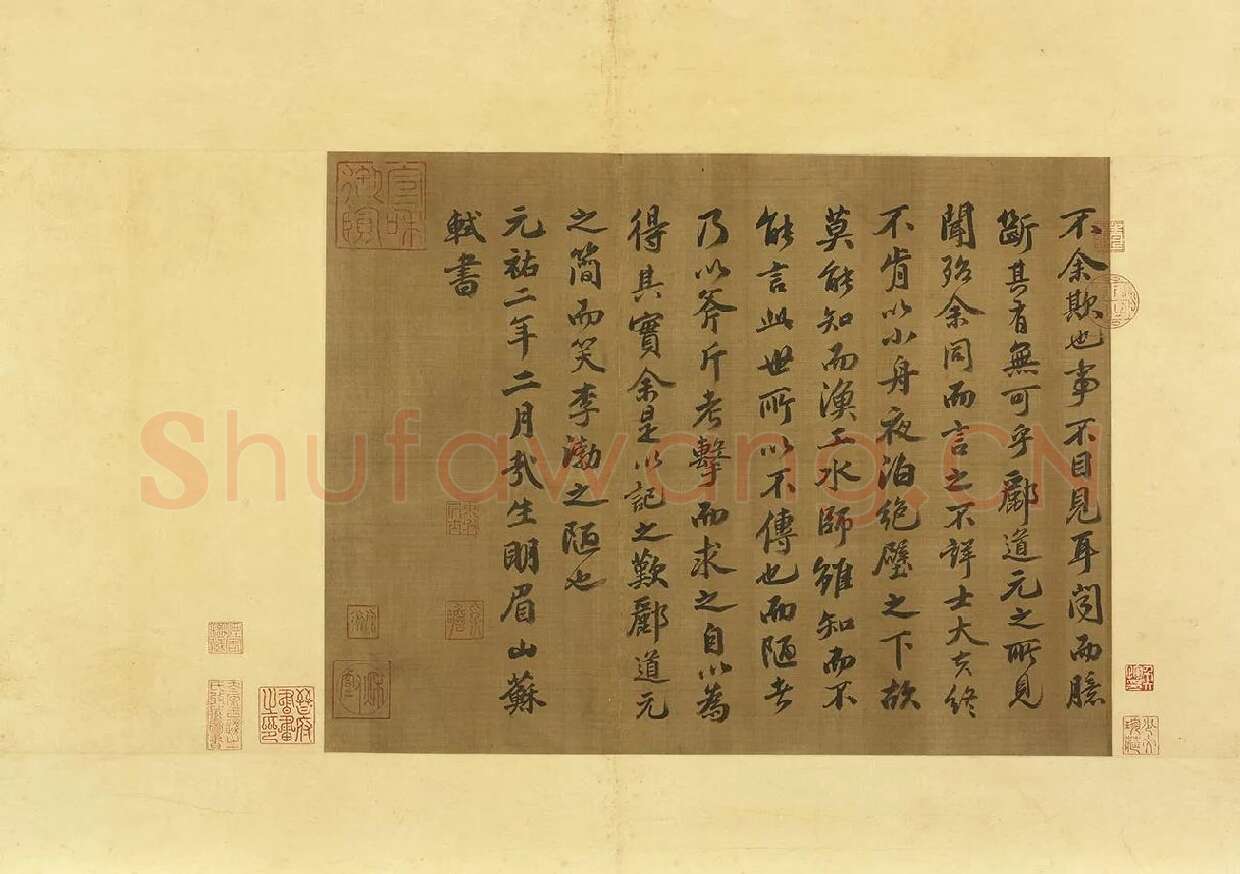 不余欺也事不目見耳聞而臆
斷其有無可乎酈道元之所見
聞殆余同而言之不詳士大夫終
不肯以小舟夜泊絕壁之下故
莫能知而漁工水師雖知而不
能言此世所以不傳也而陋者
乃以斧斤考擊而求之自以為
得其實余是以記之歎酈道元
之簡而笑李渤之陋也
元祐二年二月哉生明眉山蘇
軾書
晉府
書畫
之印
Shufawang.CN